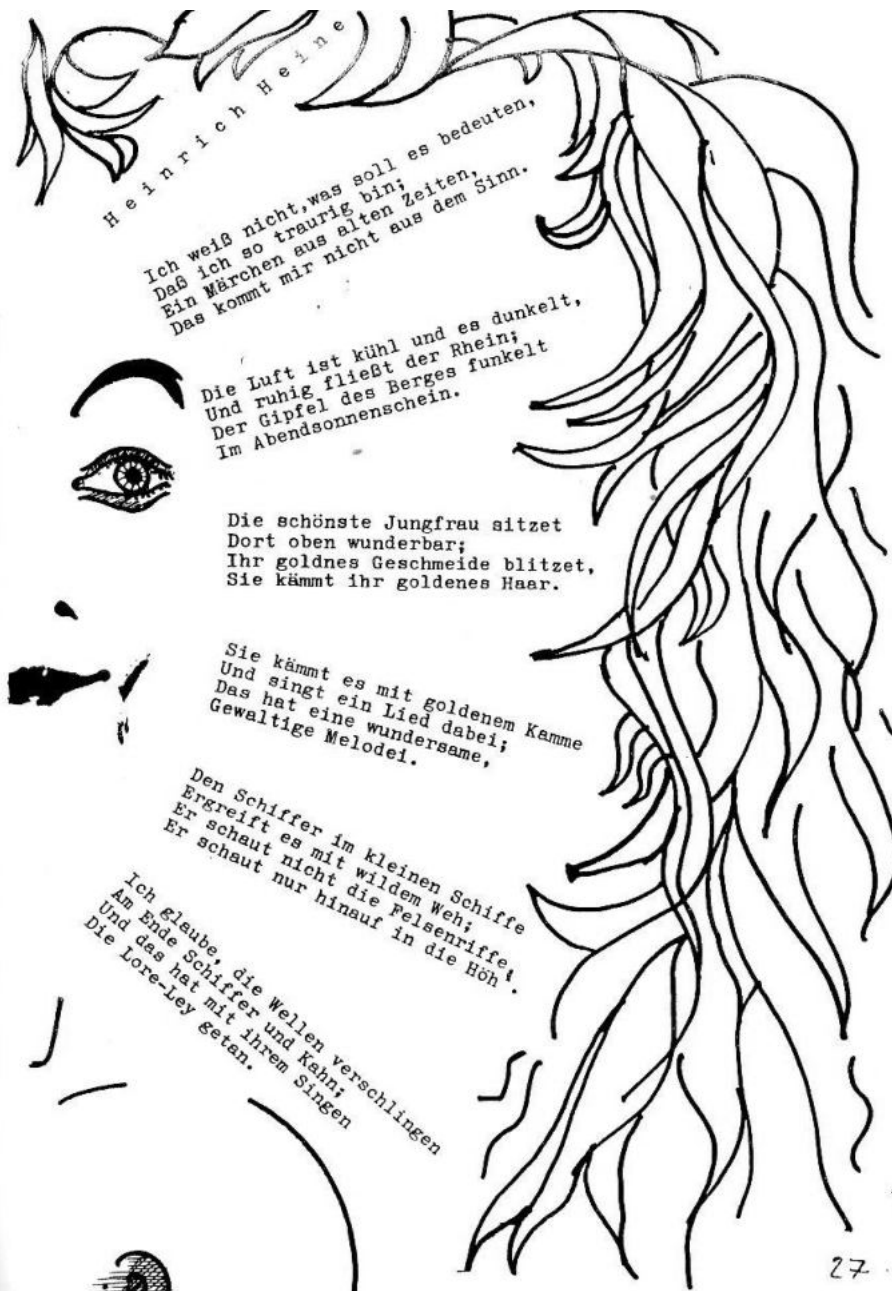 Heinrich Heine
Ich weiß nicht,was soll es bedeuten,
Daß ich so traurig bin;
Ein Märchen aus alten Zeiten,
Das kommt mir nicht aus dem Sinn.
Die Luft ist kühl und es dunkelt,
Und ruhig fließt der Rhein;
Der Gipfel des Berges funkelt
Im Abendsonnenschein.
Die schönste Jungfrau sitzet
Dort oben wunderbar;
Ihr goldnes Geschmeide blitzet,
Sie kämmt ihr goldenes Haar.
Sie kämmt es mit goldenem Kamme
Und singt ein Lied dabei;
Das hat eine wundersame,
Gewaltige Melodei.
Den Schiffer im kleinen Schiffe
Ergreift es mit wildem Weh;
Er schaut nicht die Felsenriffe,
Er schaut nur hinauf in die Höh'.
Ich glaube, die Wellen verschlingen
Am Ende Schiffer und Kahn;
Und das hat mit ihrem Singen
Die Lore-Ley getan.
27